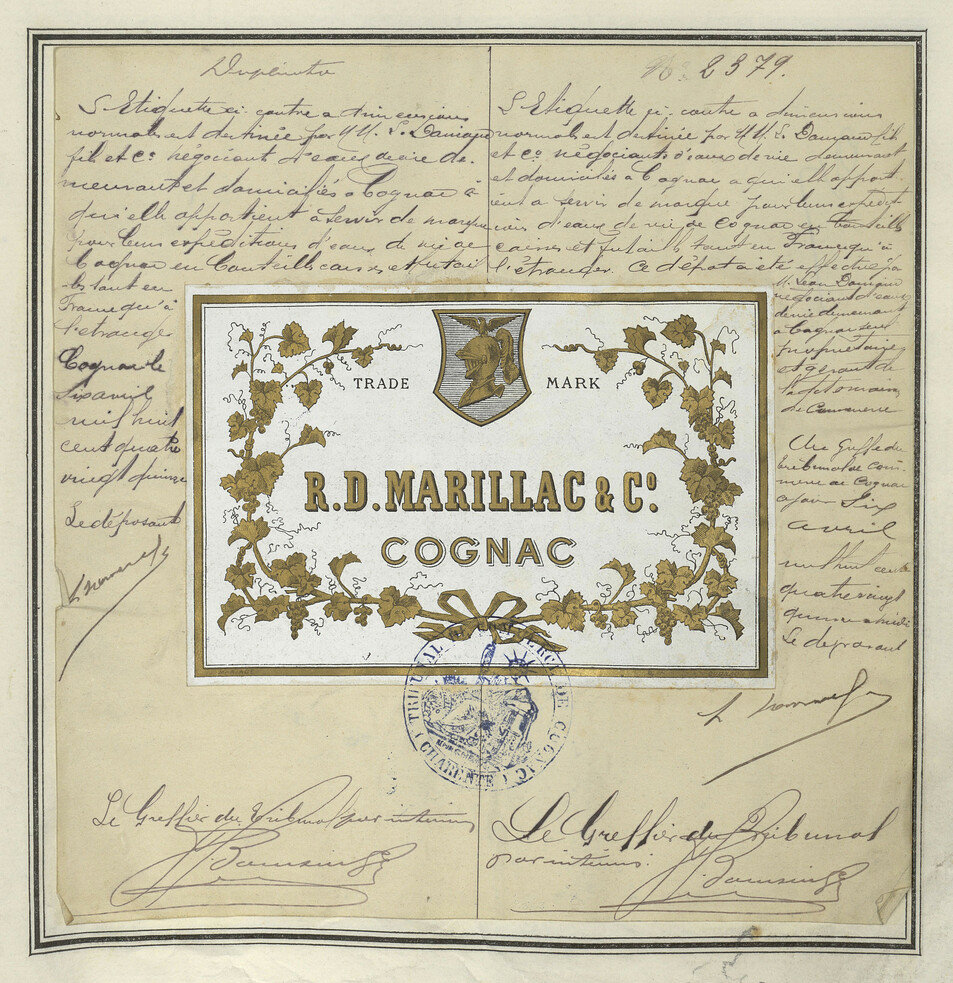 Duplicata
L'Etiquette ci contre a dimensions
normales est destinée par MM. L. Damian
fils et Co négociant d'eaux de vie de-
meurant et domiciliés à Cognac à
qui elle appartient à servir de marque
pour leurs expéditions d'eaux de vie de
Cognac en bouteilles caisses et futail
les tant en
France qu'à
l'étranger
Cognac le
six avril
mil huit
cent quatre
vingt quinze
Le déposant
Le Greffier du Tribunal par intérim
No 2379.
L'Etiquette ci contre a dimensions
normales est destinée par MM. L. Damian fils
et Co négociants d'eaux de vie demeurant
et domiciliés à Cognac a qui elle appart-
ient a servir de marque pour leurs expédit-
ions d'eaux de vie de Cognac en bouteilles
caisses et futails tant en France qu'à
l'étranger. Ce dépot a été effectué par
M. Jean Damian
négociant d'eaux
de vie demeurant
a Cognac seul
propriétaire
et gérant de
la
de Commerce
Au Greffe du
tribunal de Com-
merce de Cognac
ce jour Six
avril
mil huit cent
quatre vingt
quinze a midi
Le déposant
Le Greffier du Tribunal
par intérim:
TRADE MARK
R.D. MARILLAC & Co.
COGNAC
TRIBUNAL DE COMMERCE DE COGNAC
(CHARENTE)